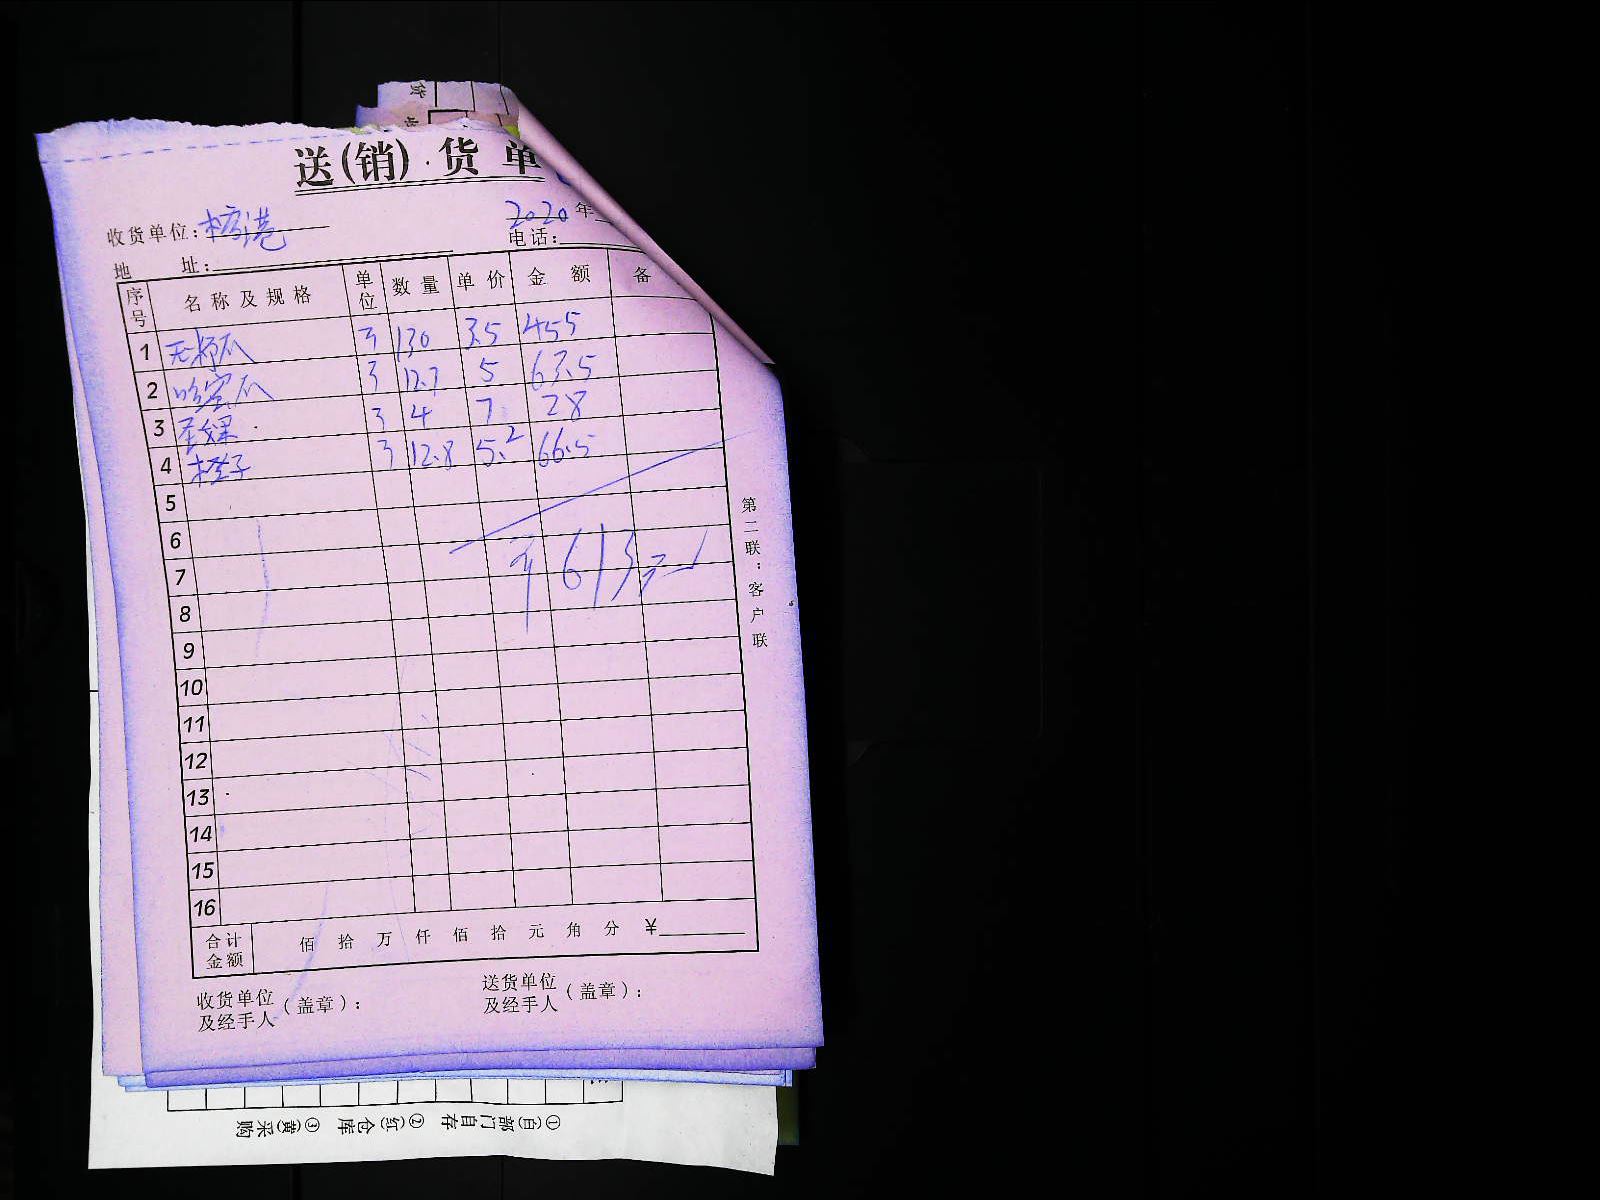 送(销)货单
收货单位：
2020 年
地 址：
电话：
序号 名称及规格 单位 数量 单价 金额 备
1 无籽瓜 斤 130 3.5 455
2 哈蜜瓜 斤 12.7 5 63.5
3 圣女果 斤 4 7 28
4 橙子 斤 12.8 5.2 66.5
5
6
¥613元
7
8
9
10
11
12
13
14
15
16
合计金额 佰 拾 万 仟 佰 拾 元 角 分 ¥
收货单位及经手人（盖章）： 送货单位及经手人（盖章）：
第二联：客户联
①(白)部门自存 ②(红)仓库 ③(黄)采购